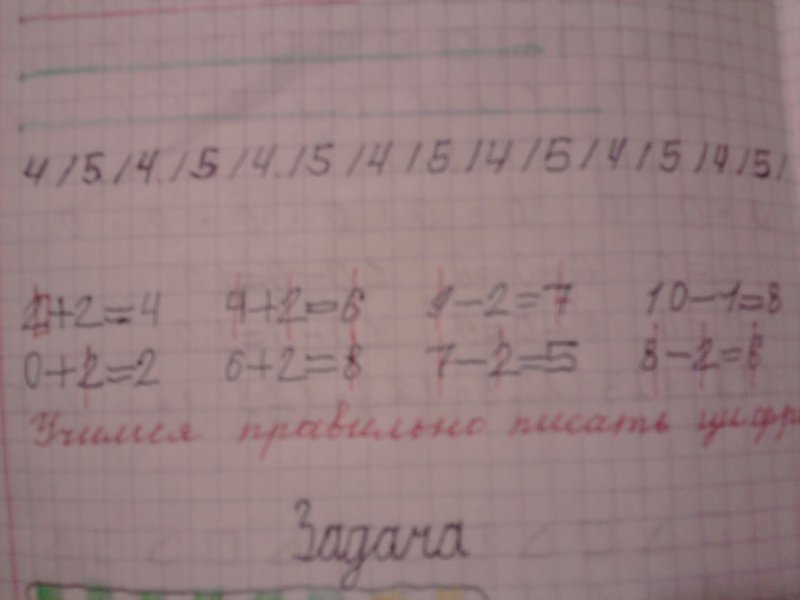 4/5/4/5/4/5/4/5/4/5/4/5/4/5/
2+2=4 4+2=6 9-2=7 10-1=8
0+2=2 6+2=8 7-2=5 8-2=6
Учимся правильно писать цифр
Задача